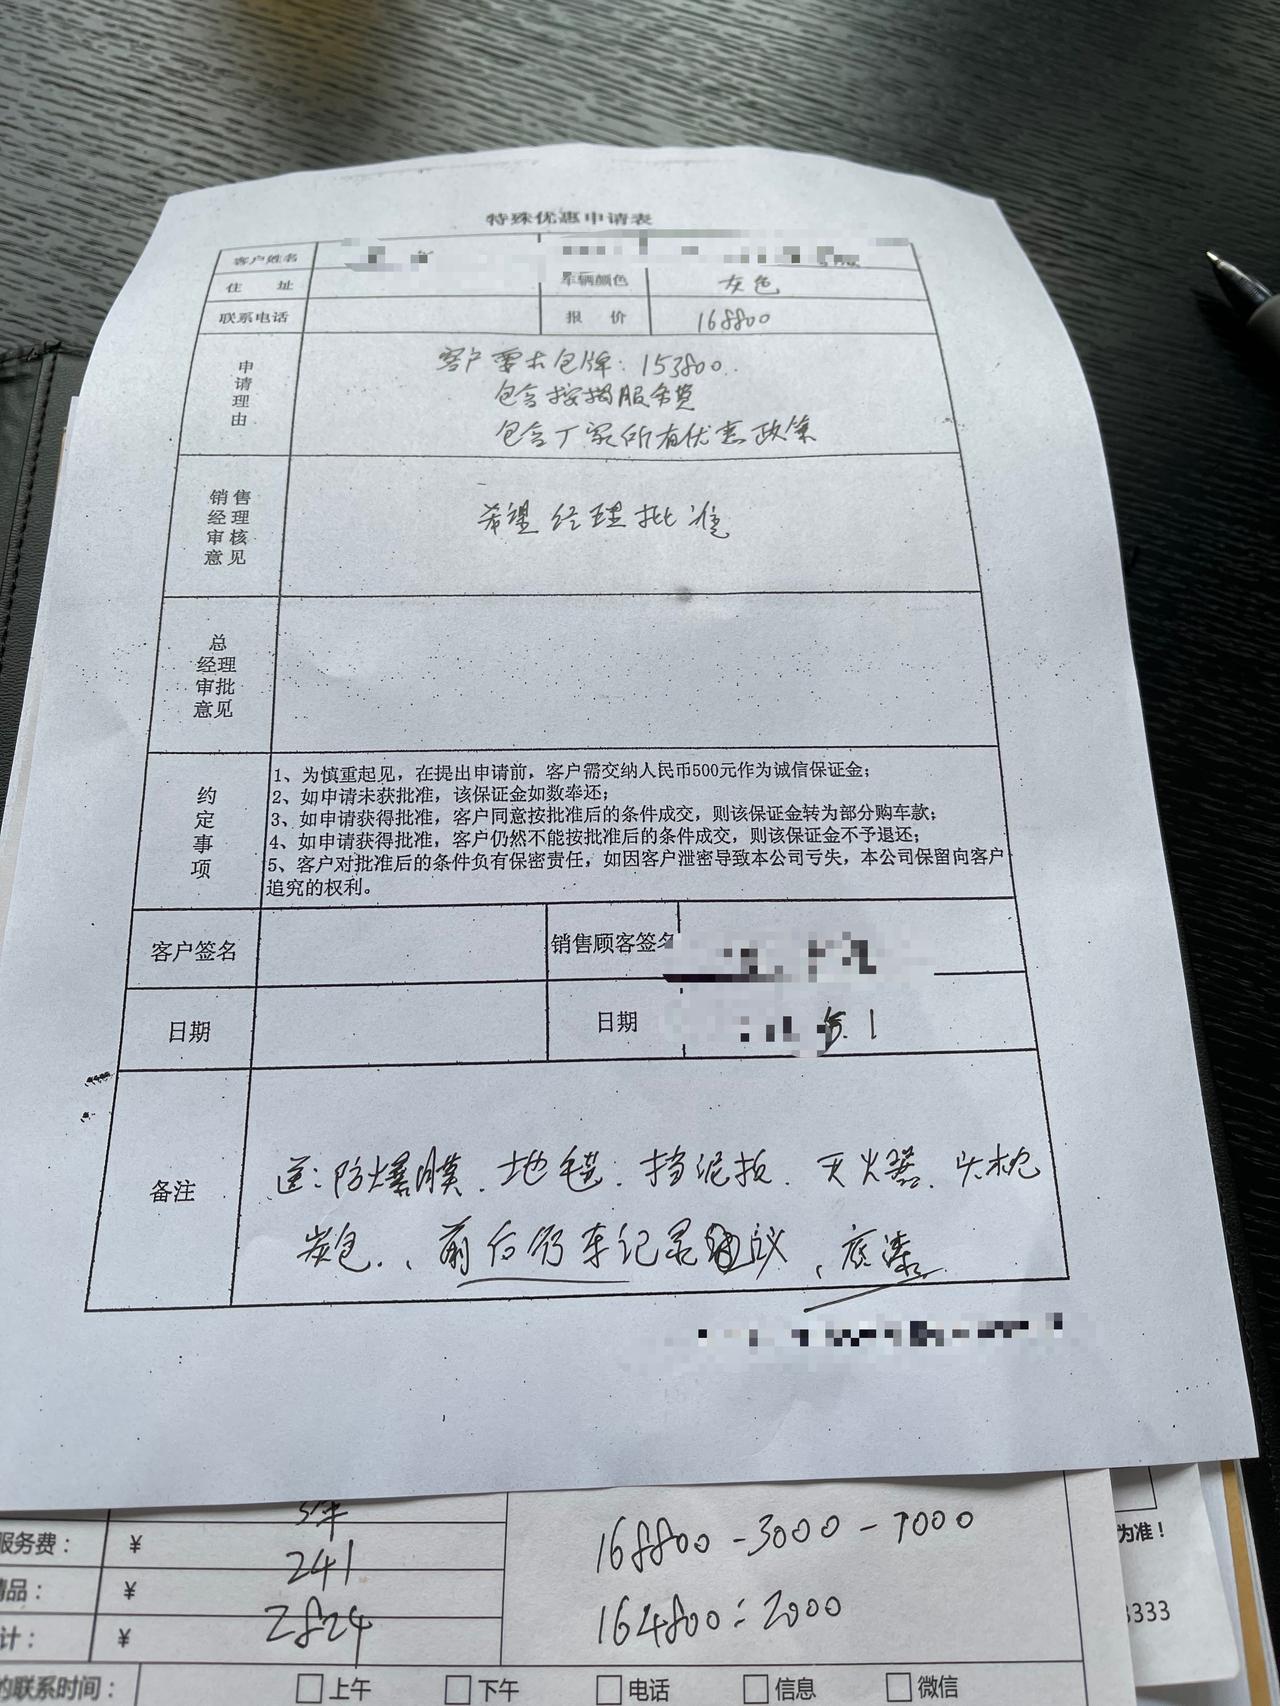 特殊优惠申请表
客户姓名
住 址
车辆颜色 灰色
联系电话
报 价 168800
申请理由
客户要求包牌：153800.
包含按揭服务费
包含厂家所有优惠政策
销售经理审核意见
希望经理批准
总经理审批意见
约定事项
1、为慎重起见，在提出申请前，客户需交纳人民币500元作为诚信保证金；
2、如申请未获批准，该保证金如数奉还；
3、如申请获得批准，客户同意按批准后的条件成交，则该保证金转为部分购车款；
4、如申请获得批准，客户仍然不能按批准后的条件成交，则该保证金不予退还；
5、客户对批准后的条件负有保密责任，如因客户泄密导致本公司亏失，本公司保留向客户
追究的权利。
客户签名
销售顾客签名
日期
日期
备注
送：防爆膜、地毯、挡泥板、灭火器、头枕
炭包、前后行车记录仪、底漆
服务费： ¥ 241
品： ¥ 2824
计： ¥
168800-3000-1000
164800-2000
为准！
3333
的联系时间： 上午 下午 电话 信息 微信